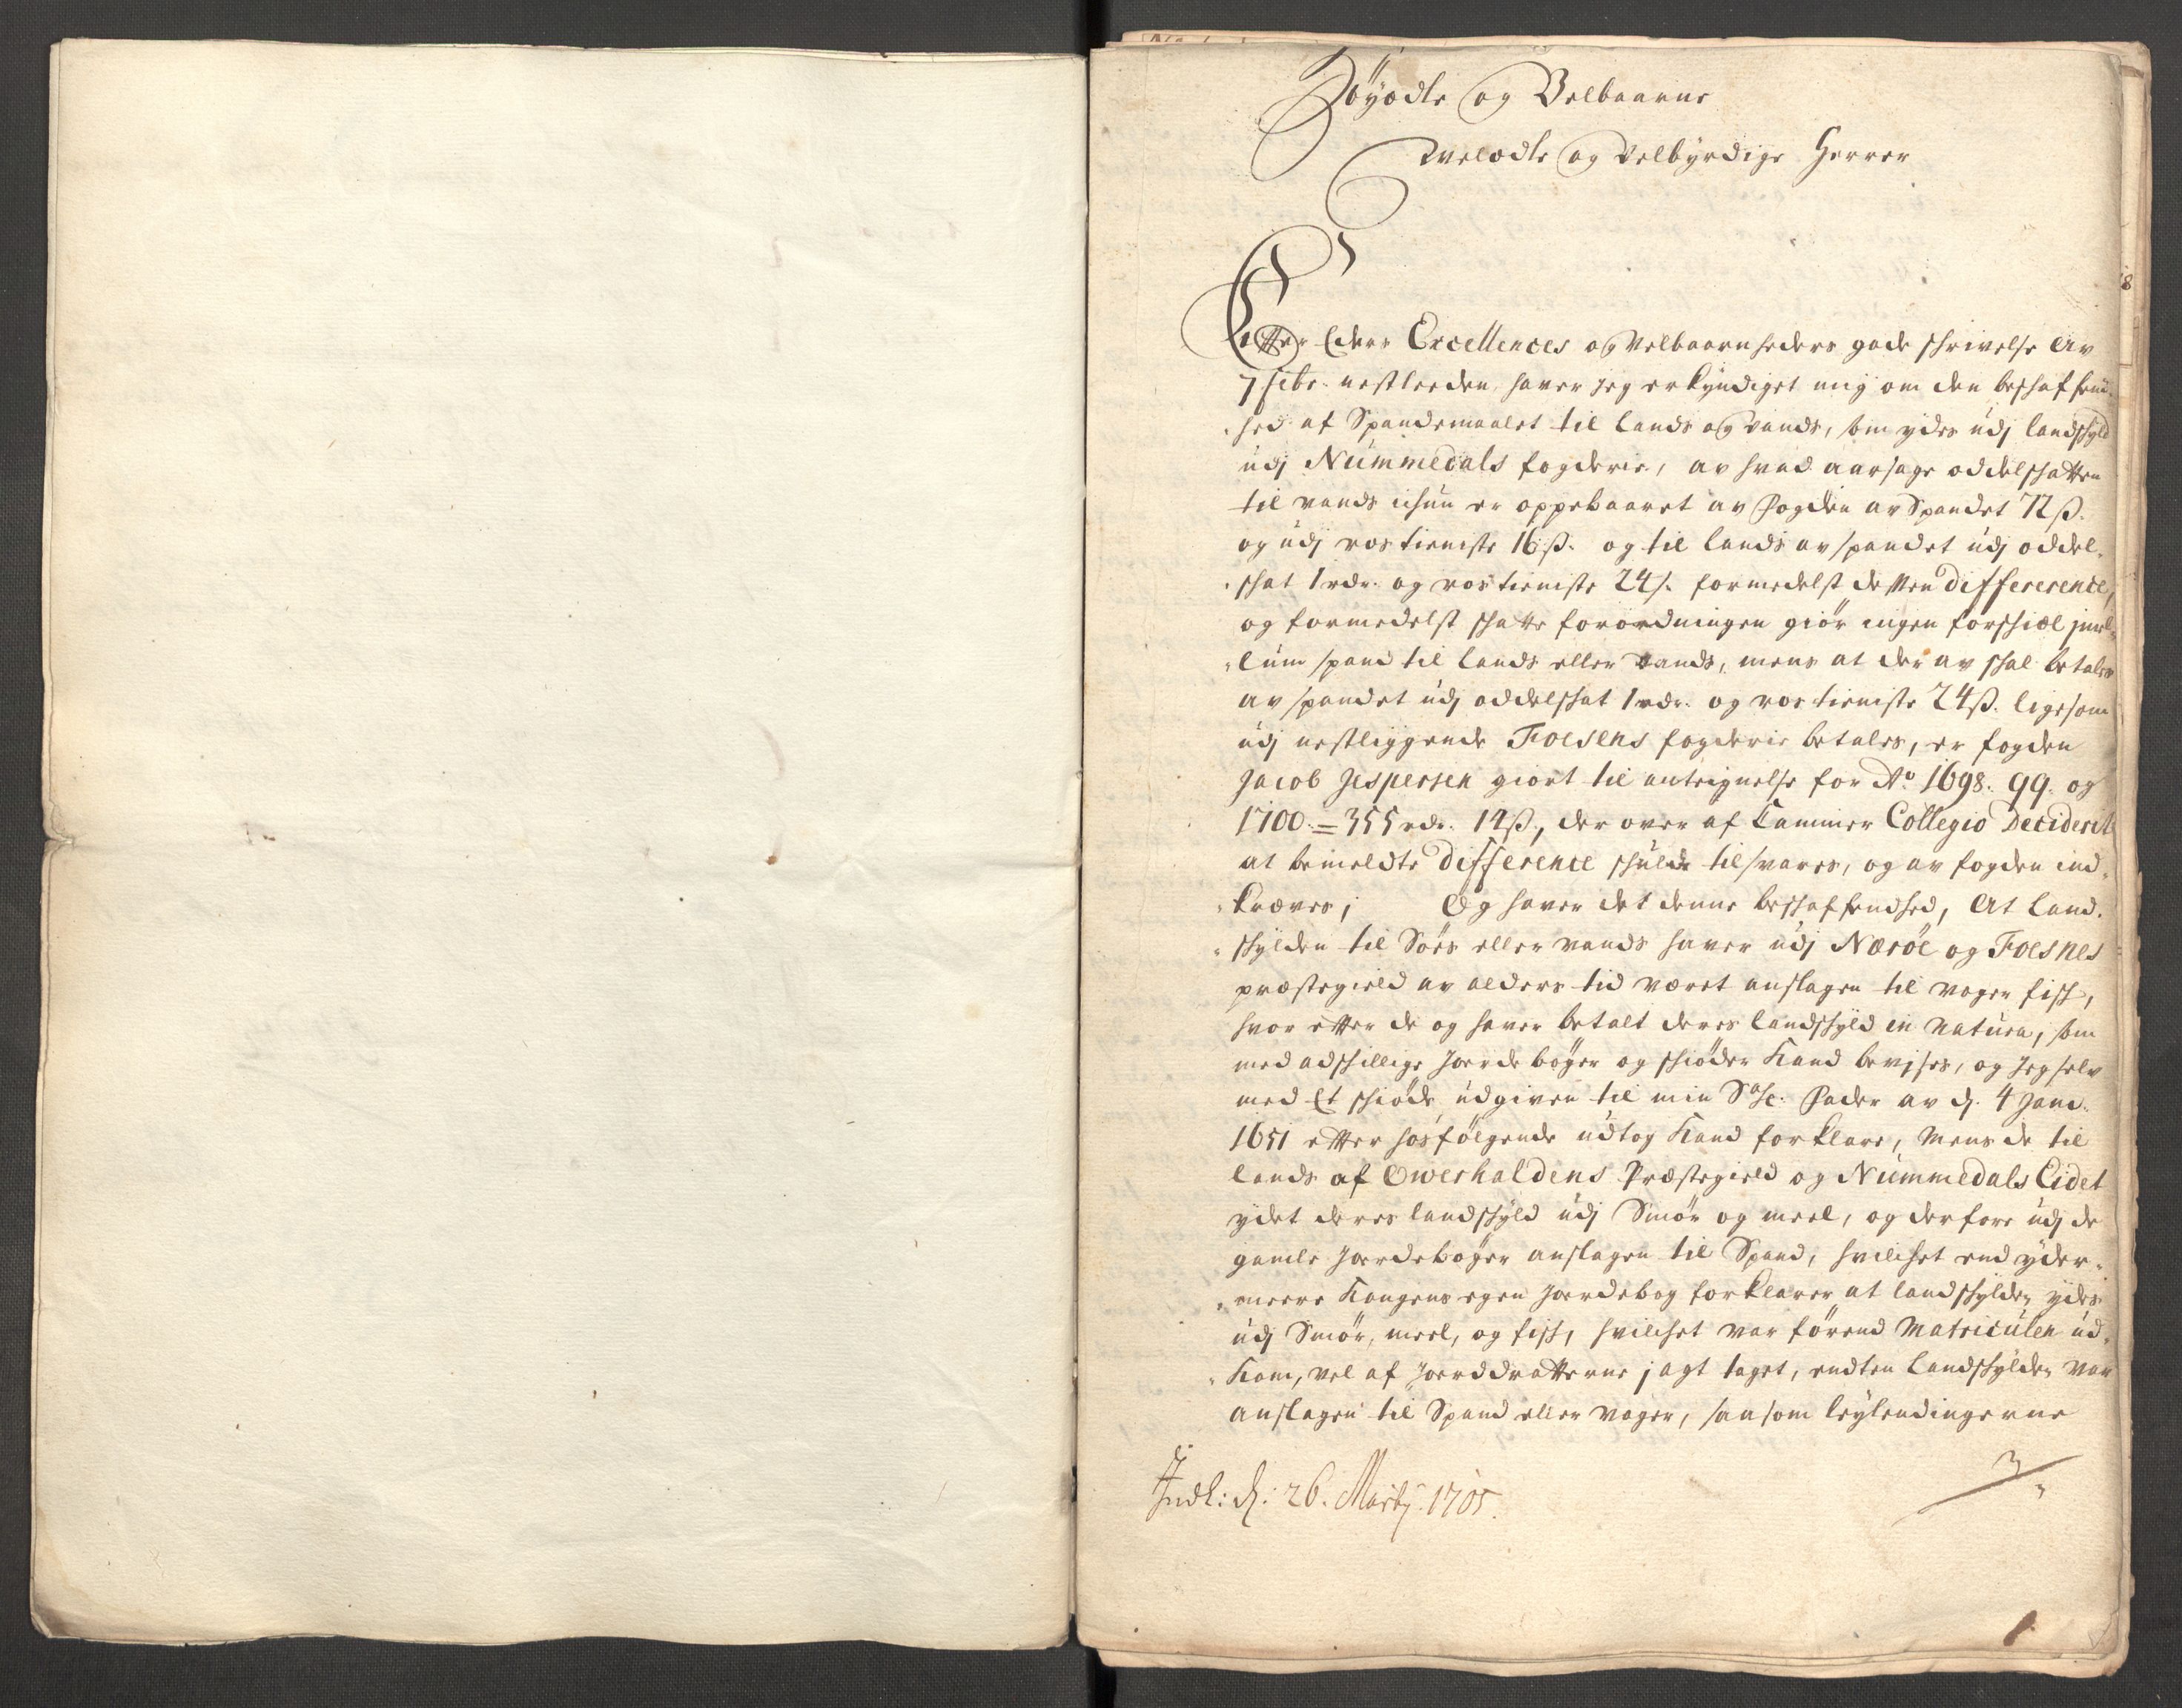 Høyædle og Velbaarne
Welædle og Velbyrdige Herrer
Efter Eders Excellences og Velbaarnheders gode schrivelse av
7 febr. nestleeden haver jeg erkyndiget mig om den beschaffend-
hed af Spandemaalet til lands og vands, som ydes udj landschyld
udj Nummedals fogderie, av hvad aarsage oddelschatten
til vands ichun er oppebaaret av Fogden av Spandet 72 ß.
og udj rostieniste 16 ß. og til lands av spandet udj oddel-
schat 1 rdr. og rostieniste 24 ß. formedelst dessen differerence,
og formedelst schatte forordningen giør ingen forschiæl imel-
lum spand til lands eller vands, mens at der av schal betales
av spandet udj oddelschat 1 rdr. og rostieniste 24 ß. ligesom
udj nestliggende Foesens fogderie betales, er fogden
Jacob Jespersen giort til antegnelse for Ao 1698. 99. og
1700. = 355 rdr. 12 ß., der over af Cammer Collegio Deciderit
at bemeldte difference schulde tilsvares, og av fogden ind-
kræves; Og haver det denne beschaffendhed, At Land-
schylden til Søes eller vands haver udj Nærøe og Foesnes
præstegield av alders tid været anslagen til voger fisch,
hvor efter de og haver betalt deres landschyld in natura, som
med adschillige Jordebøger og schiøder kand bevises, og Jeg selv
med Et schiøde udgiven til min Sal: Fader av dj. 4 Janu.
1651 efter hosfølgende udtog kand forklare, Mens de til
lands af Owerhaldens Præstegield og Nummedals Eidet
ydet deres landschyld udj Smør og meel, og derfore udj de
gamle Jordebøger anslagen til Spand, hvilchet end yder-
meere Kongens egen Jordebog forklarer at landschylden ydes
udj Smør, meel, og fisch, hvilchet var førend Matriculen ud-
kom, vel af Jorddrotterne j agt taget, endten Landschylden var
anslagen til Spand eller voger, saasom leylendingerne
Indl: dj: 26. Martj. 1705.